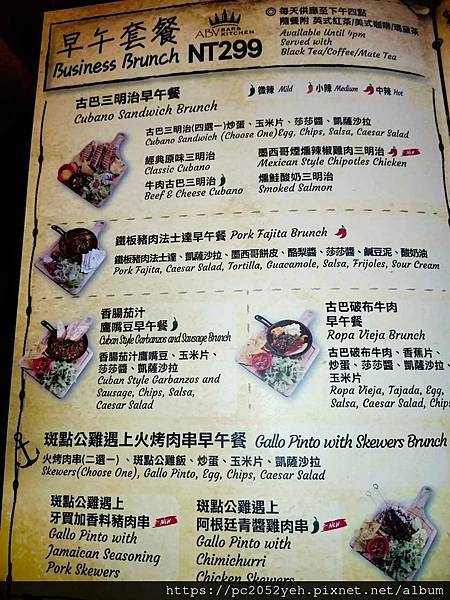 早午套餐
Business Brunch
ABV BAR & KITCHEN
NT299
每天供應至下午四點
隨餐附 英式紅茶/美式咖啡/瑪黛茶
Available Until 4pm
Served with
Black Tea/Coffee/Mate Tea
微辣 Mild 小辣 Medium 中辣 Hot
古巴三明治早午餐
Cubano Sandwich Brunch
古巴三明治(四選一)炒蛋、玉米片、莎莎醬、凱薩沙拉
Cubano Sandwich (Choose One)Egg, Chips, Salsa, Caesar Salad
經典原味三明治
Classic Cubano
墨西哥煙燻辣椒雞肉三明治 NEW
Mexican Style Chipotles Chicken
牛肉古巴三明治
Beef & Cheese Cubano
燻鮭酸奶三明治
Smoked Salmon
鐵板豬肉法士達早午餐 Pork Fajita Brunch
鐵板豬肉法士達、凱薩沙拉、墨西哥餅皮、酪梨醬、莎莎醬、鹹豆泥、酸奶油
Pork Fajita, Caesar Salad, Tortilla, Guacamole, Salsa, Frijoles, Sour Cream
香腸茄汁
鷹嘴豆早午餐
Cuban Style Garbanzos and Sausage Brunch
香腸茄汁鷹嘴豆、玉米片、
莎莎醬、凱薩沙拉
Cuban Style Garbanzos and
Sausage, Chips, Salsa,
Caesar Salad
古巴破布牛肉
早午餐
Ropa Vieja Brunch
古巴破布牛肉、香蕉片、
炒蛋、莎莎醬、凱薩沙拉、
玉米片
Ropa Vieja, Tajada, Egg,
Salsa, Caesar Salad, Chips
斑點公雞遇上火烤肉串早午餐 Gallo Pinto with Skewers Brunch
火烤肉串(二選一)、斑點公雞飯、炒蛋、玉米片、凱薩沙拉
Skewers(Choose One), Gallo Pinto, Egg, Chips, Caesar Salad
斑點公雞遇上
牙買加香料豬肉串 NEW
Gallo Pinto with
Jamaican Seasoning
Pork Skewers
斑點公雞遇上
阿根廷青醬雞肉串 NEW
Gallo Pinto with
Chimichurri
Chicken Skewers
https://pc2052yeh.pixnet.net/album